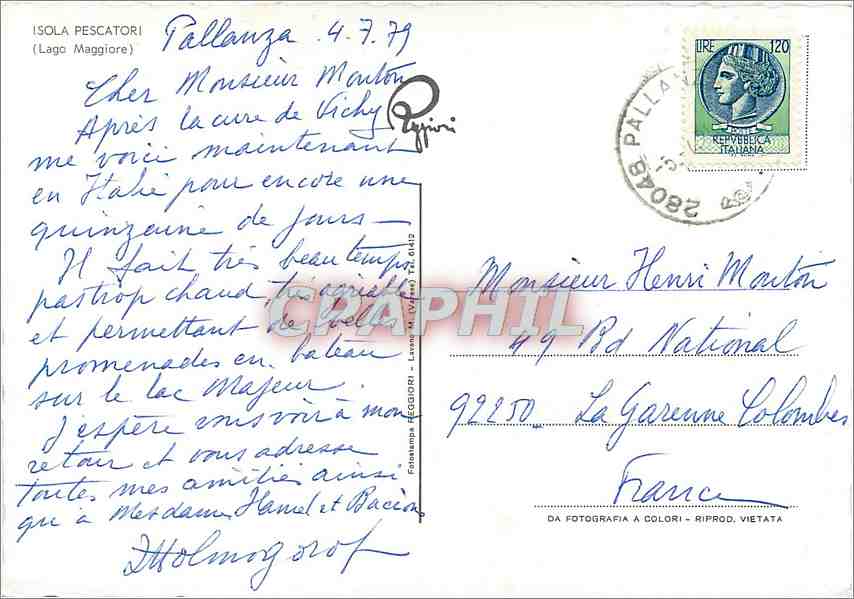 ISOLA PESCATORI
(Lago Maggiore)
Pallanza 4.7.79
Cher Monsieur Mouton
Après la cure de Vichy
me voici maintenant
en Italie pour encore une
quinzaine de jours—
Il fait très beau temps
pas trop chaud, très agréable
et permettant de belles
promenades en bateau
sur le lac Majeur.
J'espère vous voir à mon
retour et vous adresse
toutes mes amitiés ainsi
qu'à Mesdames Hamel et
Reggiori
Fotostampa REGGIORI - Laveno M. (Varese) Tel. 61412
LIRE 120
REPVBBLICA
ITALIANA
28048 PALLANZA
Monsieur Henri Mouton
49 Bd National
92250_ La Garenne Colombes
France
DA FOTOGRAFIA A COLORI - RIPROD. VIETATA
CPAPHIL